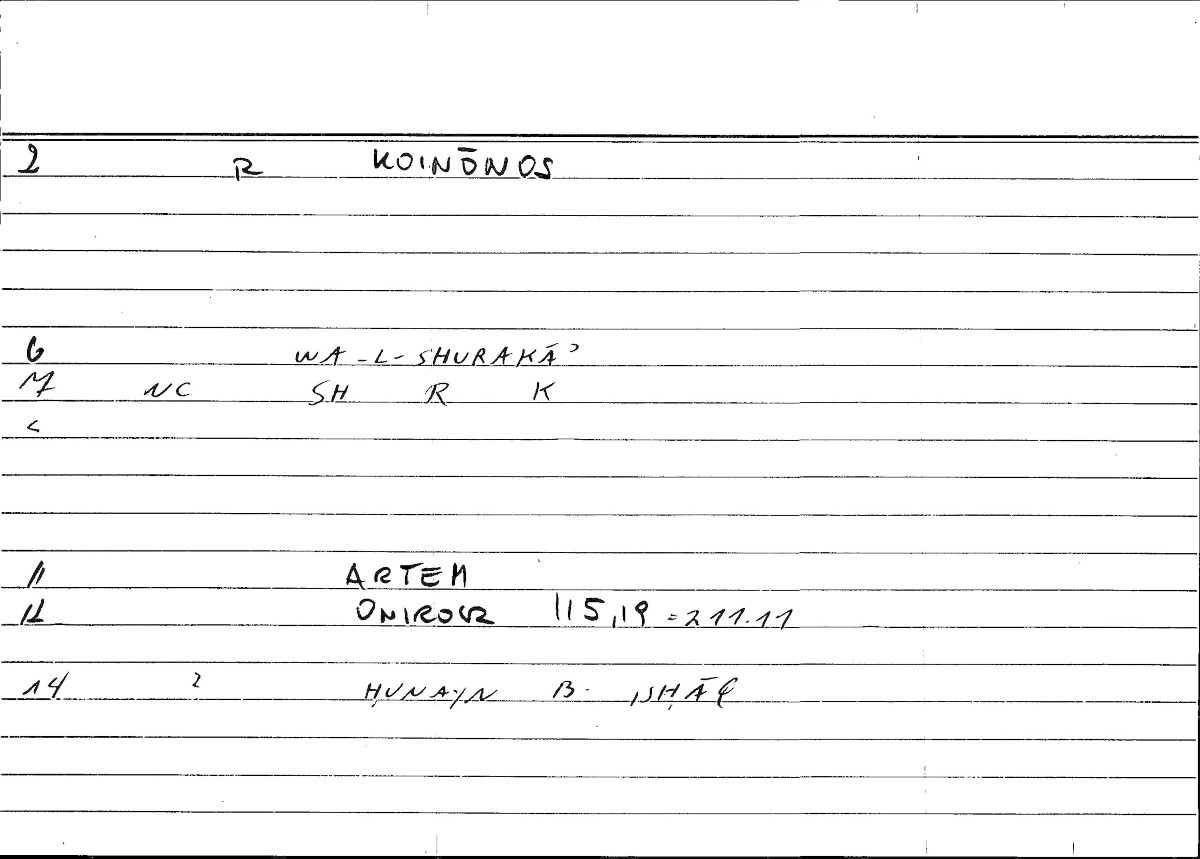 2 R KOINŌNOS
6 WA-L-SHURAKĀʾ
7 NC SH R K
<
11 ARTEM
12 ONIROCR 115,19 = 211.11
14 2 ḤUNAYN B. ISḤĀQ